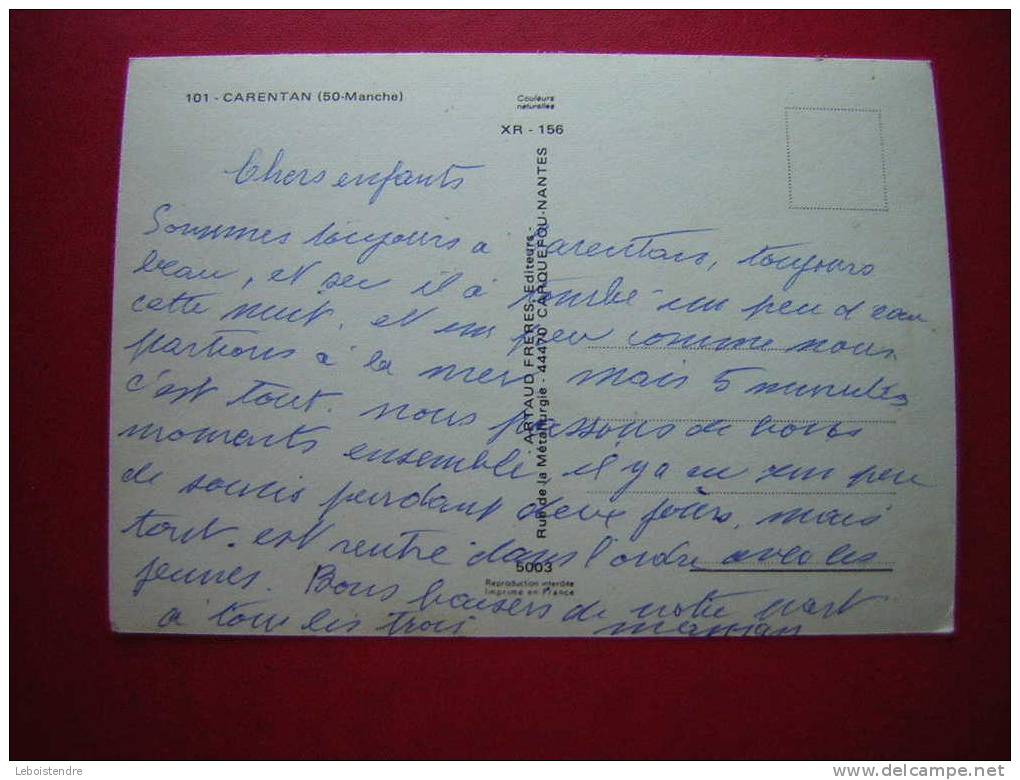 101 - CARENTAN (50-Manche)
Couleurs
naturelles
XR - 156
ARTAUD FRÈRES, Editeurs -
Rue de la Métallurgie - 44470 CARQUEFOU-NANTES
Chers enfants
Sommes toujours a Carentan, toujours
beau, et sec il a tombé un peu d'eau
cette nuit. et un peu comme nous
partions à la mer mais 5 minutes
c'est tout. nous passons de bons
moments ensemble, il y a eu un peu
de soucis pendant deux jours, mais
tout. est rentré dans l'ordre avec les
jeunes. Bons baisers de notre part
a tous les trois maman
5003
Reproduction interdite
Imprimé en France
Leboistendre
delcampe.net